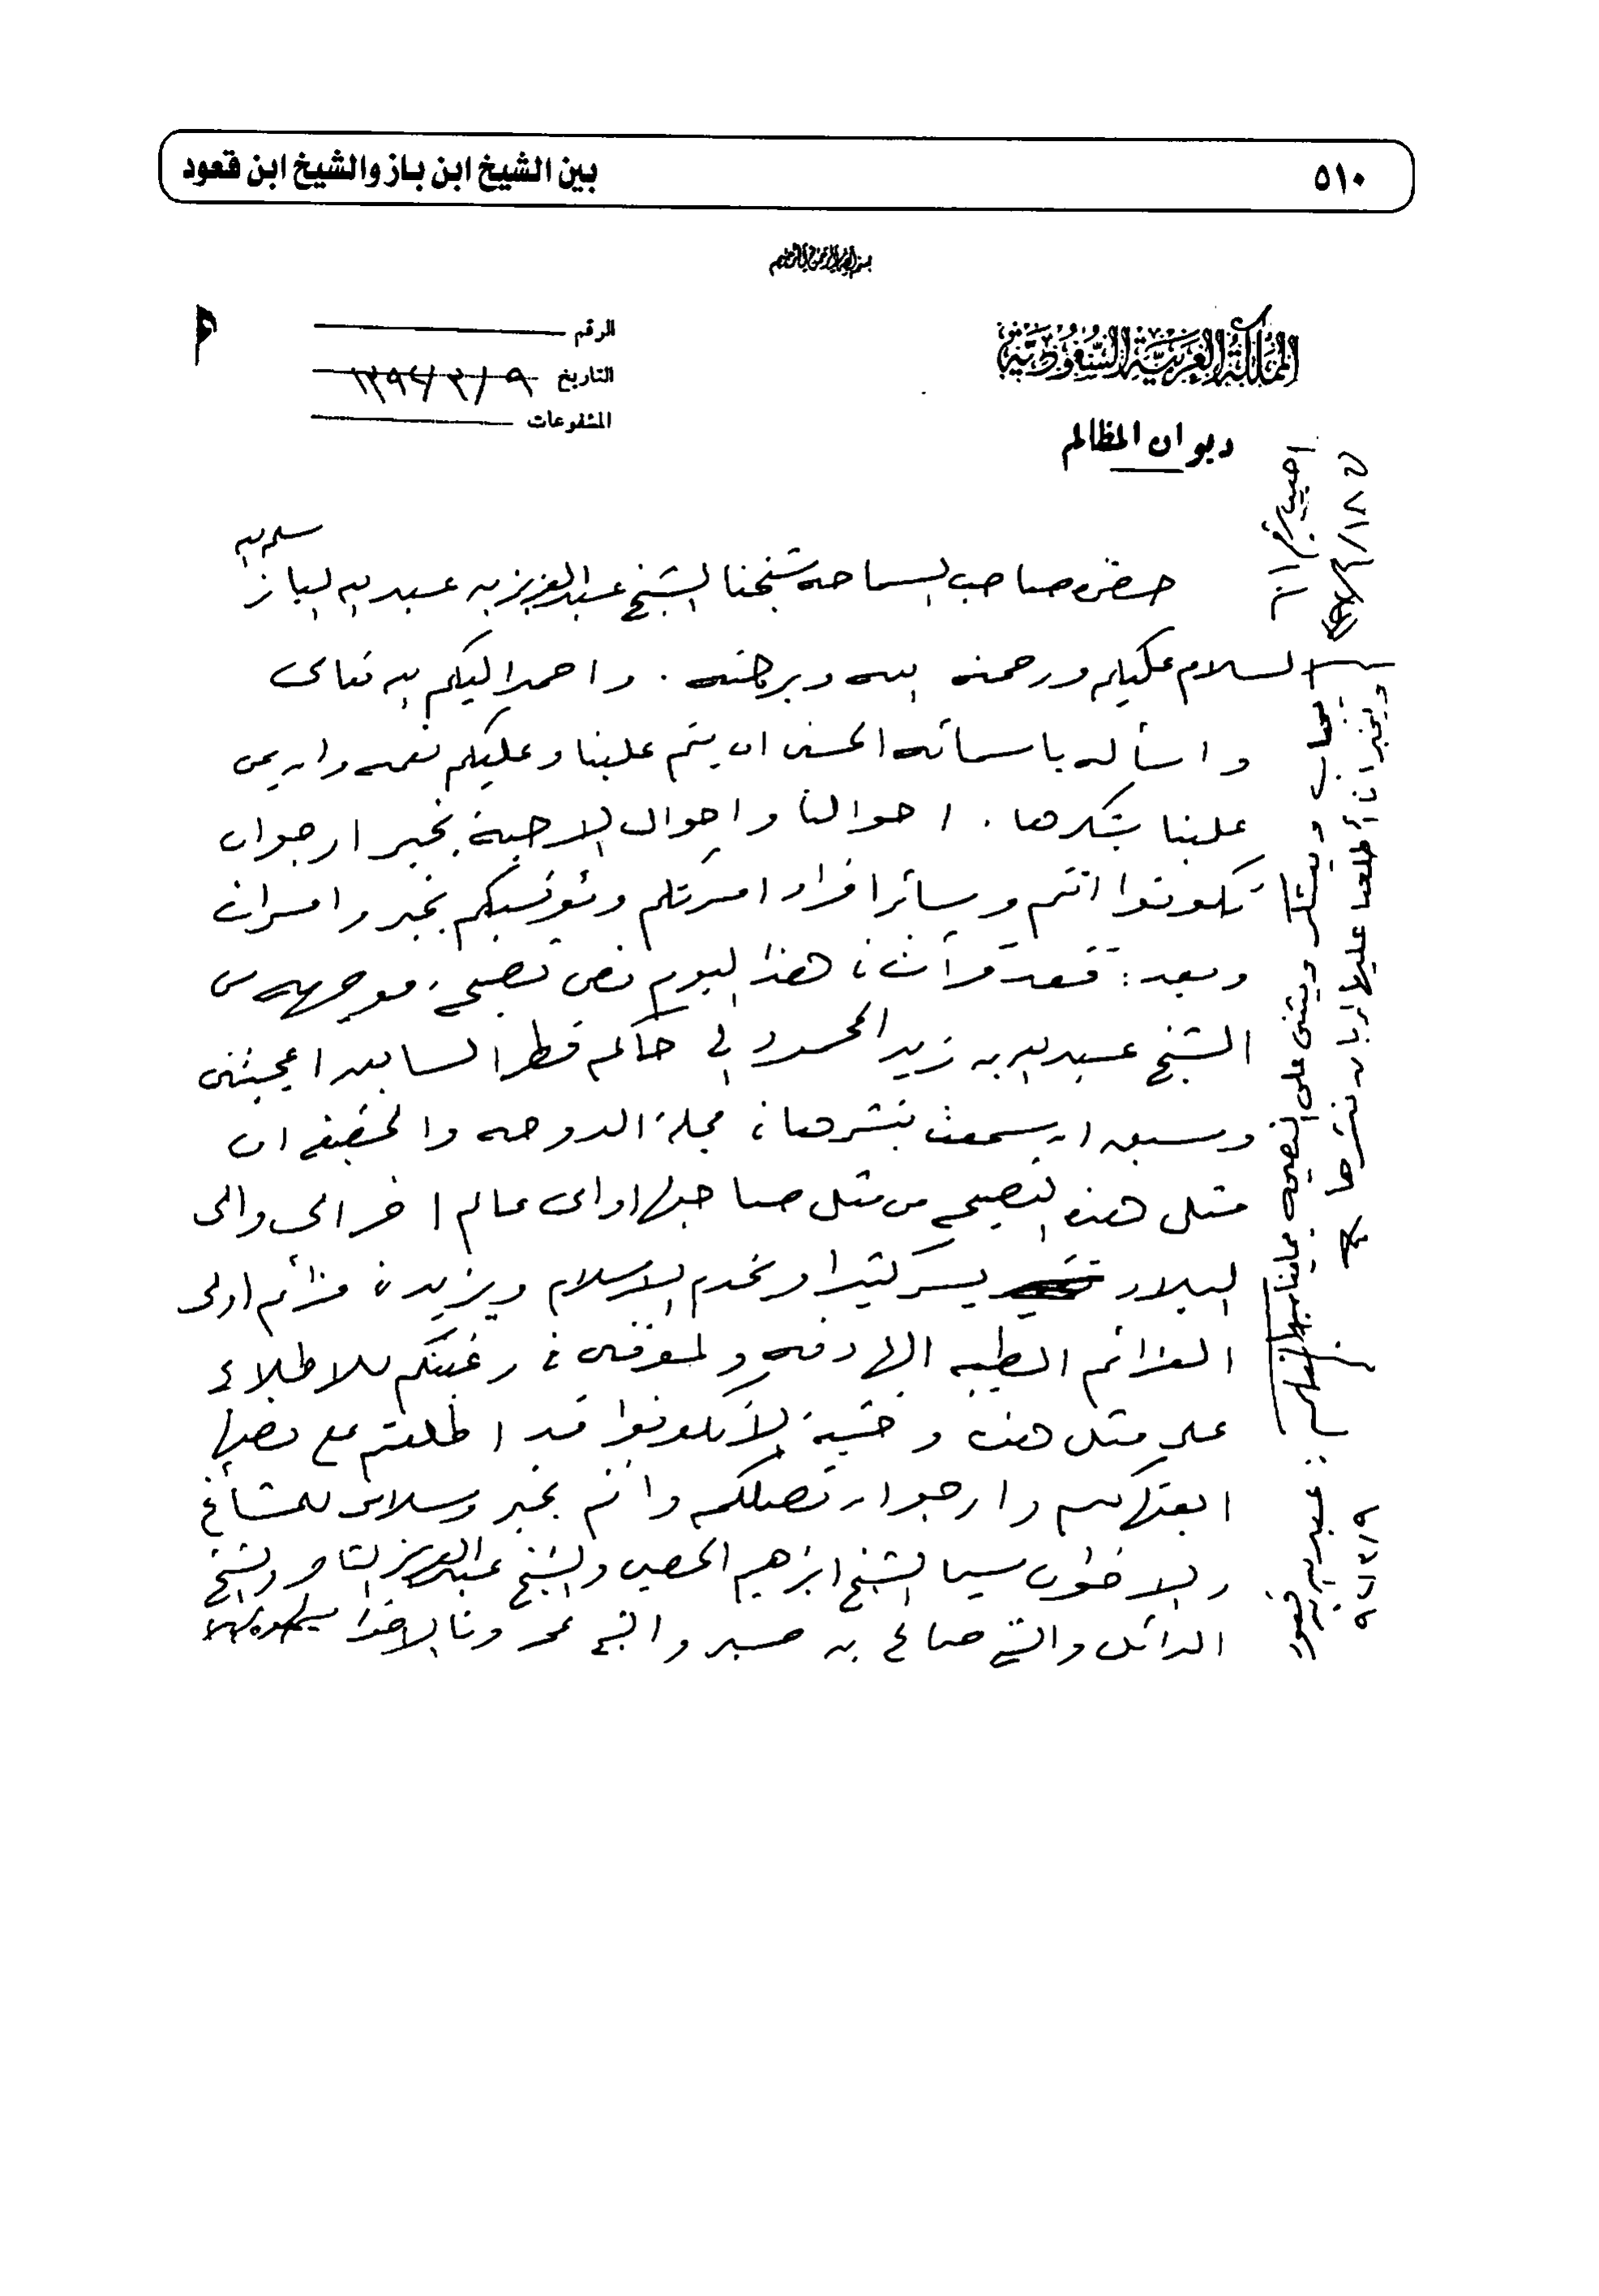 ٥١٠
بين الشيخ ابن باز والشيخ ابن قعود
بسم الله الرحمن الرحيم
المملكة العربية السعودية
ديوان المظالم
الرقم
التاريخ ٩/٣/١٣٩٤
المشفوعات
حضرة صاحب السماحة شيخنا الشيخ عبد العزيز بن عبد الله الباز سلمه الله
السلام عليكم ورحمة الله وبركاته . واحمد اليكم الله تعالى
واسأله باسمائه الحسنى ان يتم علينا وعليكم نعمه وان يمن
علينا بشكرها . احوالنا واحوال الاحبة بخير ارجو ان
تكونوا انتم وسائر افراد اسرتكم ومنسوبيكم بخير وامتنان
وبعد : فقد قرأت في هذا اليوم نص نصيحة موجهه من
الشيخ عبد الله بن زيد المحمود الى حاكم قطر السابق اعجبتني
وسبق ان سمعت بنشرها في مجلة الدوحه والحقيقة ان
مثل هذه النصيحة من مثل صاحبها او اي عالم اخر الى والى
البلاد يسر كثيرا ويخدم الاسلام ويزيد في عزائم اولى
العزائم الطيبه الهادفه ولمعرفتى في رغبتكم للاطلاع
على مثل هذه وخشية الا تكونوا قد اطلعتم على نصها
ابعثها لكم وارجو ان تصلكم وانتم بخير وسلامى للمشايخ
والاخوان سيما الشيخ ابراهيم الحصين والشيخ عبد العزيز الناصر والشيخ
الدائل والشيخ صالح بن حسين والشيخ محمد وباقي الاخوان
عبد الله بن قعود
٩/٣/٩٤
يجاب ويشكر ويثنى على النصيحة بما يناسبها
ويخبر اننا اطلعنا عليها